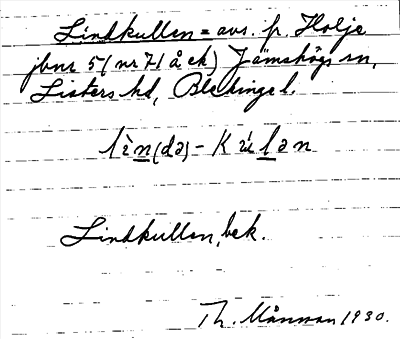 Lindkullen = avs. fr. Holje
jbnr 51 (nr 71 å ek) Jämshögs sn,
Listers hd, Blekinge l.
lìn(də) - Kúlən
Lindkullen, bek.
Th. Månsson 1930.